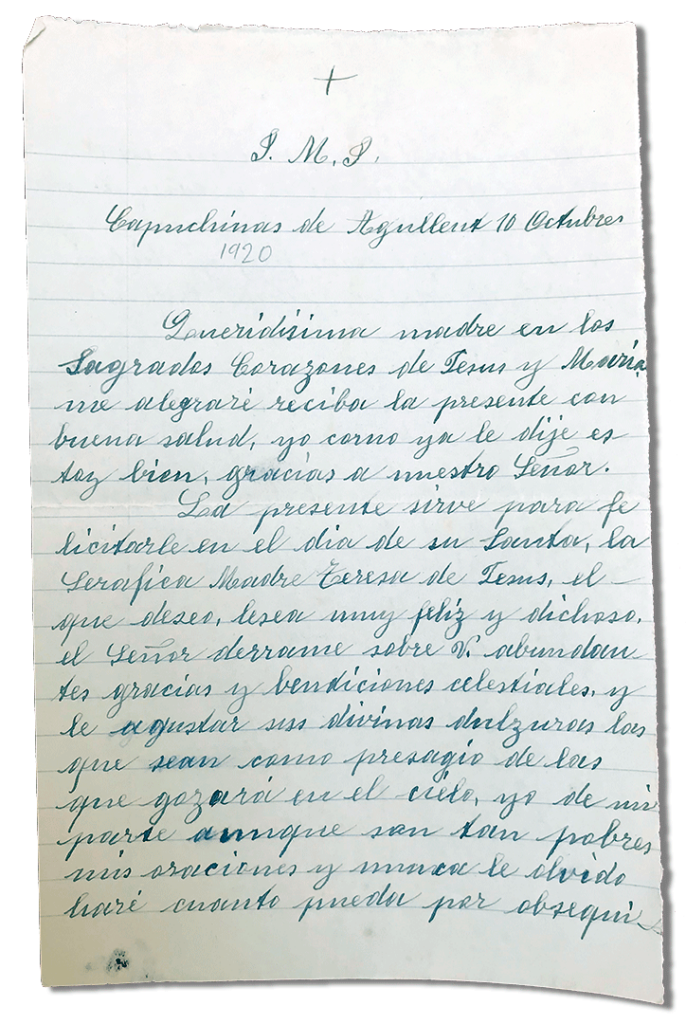 +
J. M. J.
Capuchinas de Agullent 10 Octubre
1920
Queridísima madre en los
Sagrados Corazones de Jesus y María,
me alegraré reciba la presente con
buena salud, yo como ya le dije es
toy bien, gracias a nuestro Señor.
La presente sirve para fe
licitarle en el dia de su Santa, la
Serafica Madre Teresa de Jesus, el
que deseo, lesea muy feliz y dichoso,
el Señor derrame sobre V. abundan
tes gracias y bendiciones celestiales, y
le agustar sus divinas dulzuras las
que sean como presagio de las
que gozará en el cielo, yo de mi
parte aunque son tan pobres
mis oraciones y nunca le olvido
haré cuanto pueda por obsequi